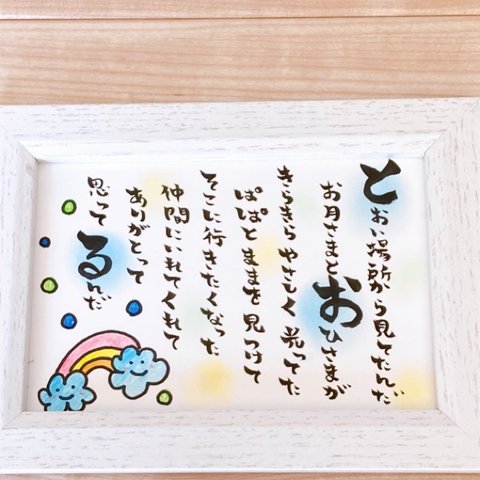 とおい場所から見てたんだ
お月さまとおひさまが
きらきら やさしく 光ってた
ぱぱとままを見つけて
そこに行きたくなった
仲間にいれてくれて
ありがとって
思ってるんだ